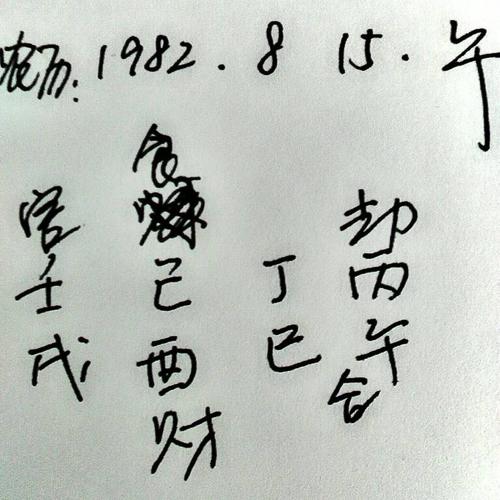 农历:1982.8 15.午
食
官 劫
壬 己 丁 丙
戌 酉 巳 午
财 合